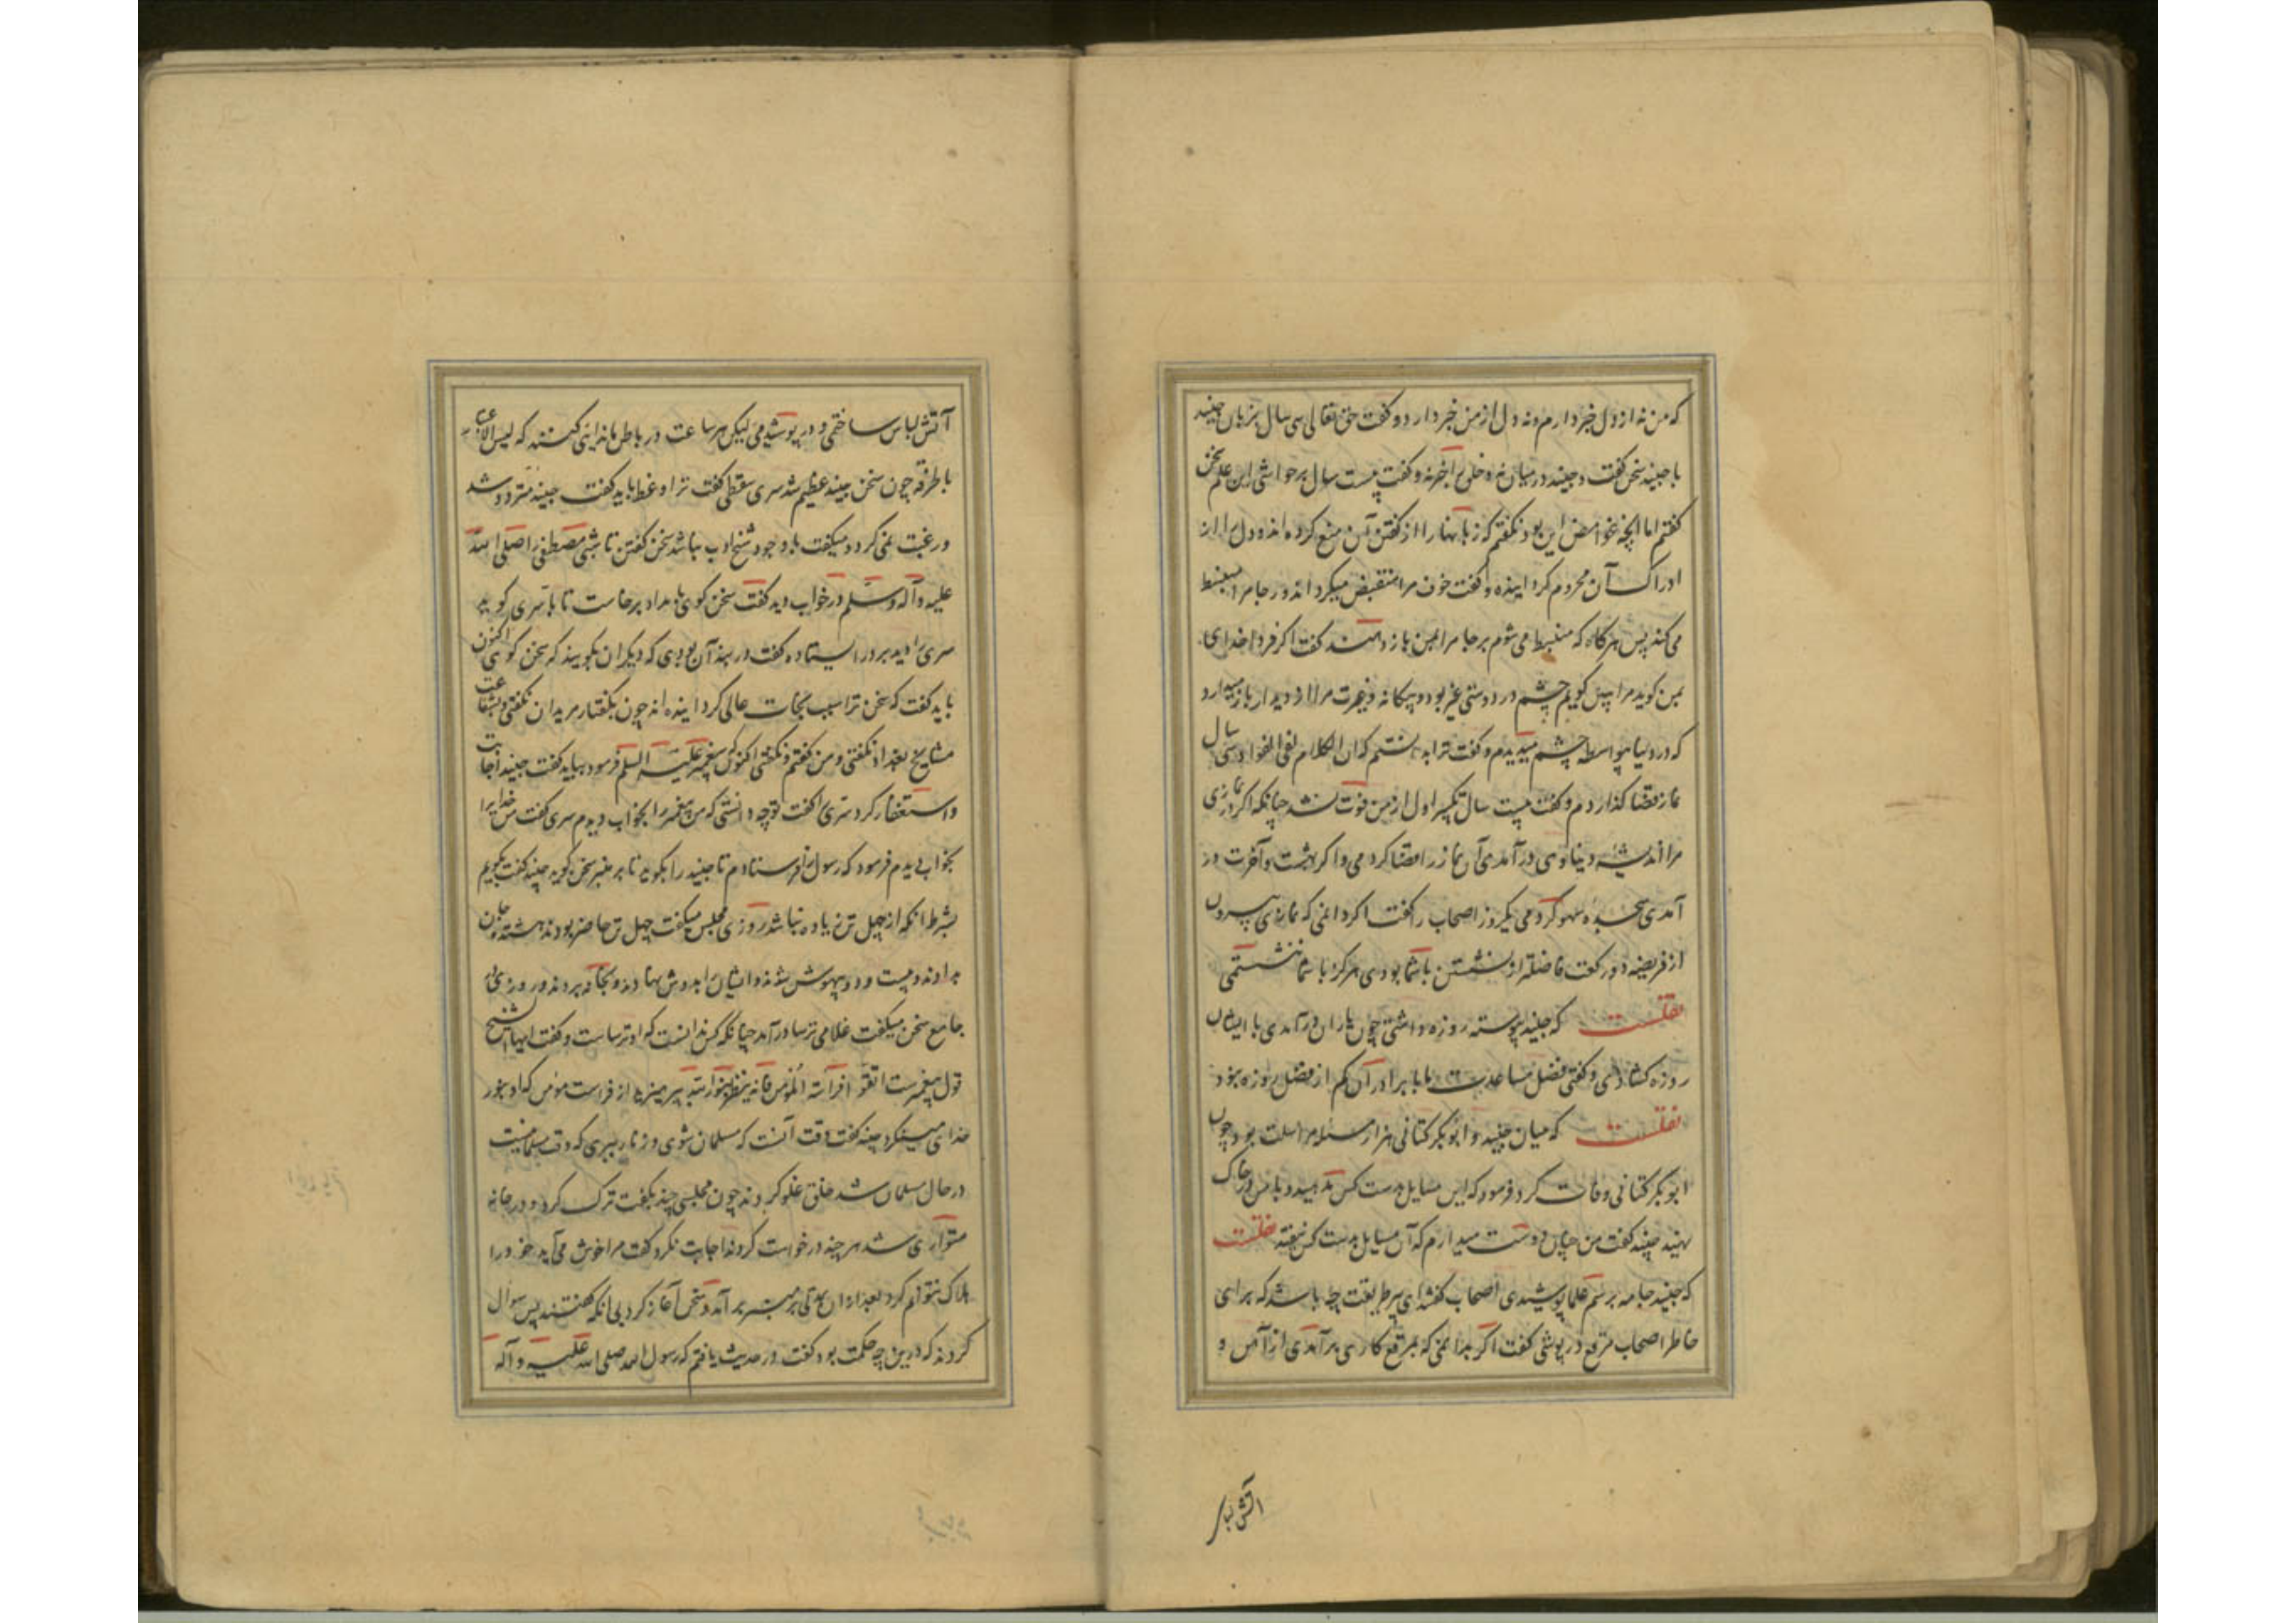 که من نه از دل خبر دارم و نه دل از من خبر دارد و گفت حق تعالی سی سال بزبان جنید
با جنید سخن گفت و جنید در میان نه و خلق را خبر نه و گفت بیست سال بر حواشی این علم سخن
گفتم اما آنچه غوامض این بود نگفتم که زبانها را از گفتن آن منع کرده اند و دل را از
ادراک آن محروم گردانیده و گفت خوف مرا منقبض میگرداند و رجا مرا منبسط
می کند پس هر گاه که منبسط می شوم برجا مرا بمن باز دهند گفت اگر فردا خدای
بمن گوید مرا ببین گویم چشم در دوستی غیر بود و بیگانه و غیرت مرا از دیدار باز میدارد
که در دنیا بیواسطه چشم میدیدم و گفت تا بدانستم که ان الکلام لفی الفواد سی سال
نماز قضا گذاردم و گفت بیست سال تکبیر اول از من فوت نشد چنانکه اگر در نمازی
مرا اندیشه دنیاوی در آمدی آن نماز را قضا کردمی و اگر بهشت و آخرت در
آمدی سجده سهو کردمی یکروز اصحاب را گفت اگر دانمی که نمازی بیرون
از فریضه دو رکعت فاضلتر از نشستن با شما بودی هرگز با شما ننشستمی
نقلست که جنید پیوسته روزه داشتی چون یاران در آمدی با ایشان
روزه گشادی و گفتی فضل مساعدت با برادران کم از فضل روزه نبود
نقلست که میان جنید و ابوبکر کتانی هزار مسئله مراسلت بود چون
ابوبکر کتانی وفات کرد فرمود که این مسایل بدست کس مدهید و با من در خاک
نهید جنید گفت من چنان دوست میدارم که آن مسایل بدست کس نیفتد نقلست
که جنید جامه برسم علما پوشیدی اصحاب گفتند ای پیر طریقت چه باشد که برای
خاطر اصحاب مرقع در پوشی گفت اگر بدانمی که بمرقع کاری بر آمدی از آهن و
آتش لباس
آتش لباس ساختمی و در پوشیدمی لیکن هر ساعت در باطن ما ندا می کنند که لیس الاعتبار
با طرقه چون سخن جنید عظیم شد سری سقطی گفت ترا وعظ باید گفت جنید متردد شد
و رغبت نمی کرد و میگفت با وجود شیخ ادب نباشد سخن گفتن تا شبی مصطفی را صلی الله
علیه و آله و سلم در خواب دید گفت سخن گوی بامداد برخاست تا با سری گوید
سری را دید بر در ایستاده گفت در بند آن بودی که دیگران بگویند که سخن گوی اکنون
باید گفت که سخن ترا سبب نجات عالی گردانیده اند چون بگفتار مریدان نگفتی و بشفاعت
مشایخ بغداد نگفتی و من گفتم و نگفتی اکنون که پیغمبر علیه السلم فرمود بباید گفت جنید اجابت
و استغفار کرد سری را گفت تو چه دانستی که من پیغمبر را بخواب دیدم سری گفت من خدایرا
بخواب دیدم فرمود که رسول را فرستادم تا جنید را بگوید تا بر منبر سخن گوید جنید گفت بگویم
بشرط آنکه از چهل تن زیاده نباشد روزی مجلس میگفت چهل تن حاضر بودند هشتده جان
بدادند و بیست و دو بیهوش شدند و ایشان را بدوش نهادند و بخانه بردند و روزی در
جامع سخن میگفت غلامی ترسا در آمد چنانکه کس ندانست که او ترساست و گفت ایها الشیخ
قول پیغمبرست اتقو افراسة المومن فانه ینظر بنور الله بپرهیزید از فراست مومن که او بنور
خدای مینگرد جنید گفت وقت آنست که مسلمان شوی و زنار ببری که وقت مسلمانیست
در حال مسلمان شد خلق غلو کردند چون مجلسی چند بگفت ترک کرد و در خانه
متواری شد هر چند درخواست کردند اجابت نکرد گفت مرا خوش می آید خود را
هلاک نتوانم کرد بعد از آن بمدتی بر منبر بر آمد و سخن آغاز کرد بی آنکه گفتند پس سوال
کردند که درین چه حکمت بود گفت در حدیث یافتم که رسول الله صلی الله علیه و آله